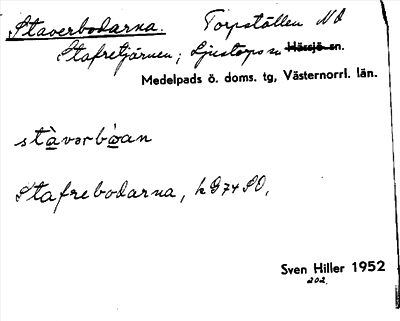 Staverbodarna. Torpställen NO
Stafretjärnen; Ljustorps sn Hässjö sn.
Medelpads ö. doms. tg, Västernorrl. län.
stàvərbò̀an
Stafrebodarna, kG74SO,
Sven Hiller 1952
202.